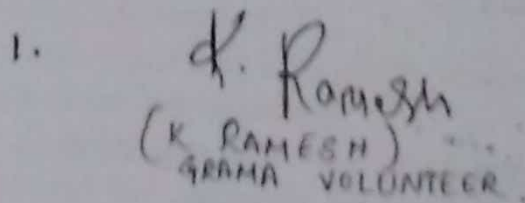 1. K. Ramesh
(K RAMESH)
GRAMA VOLUNTEER